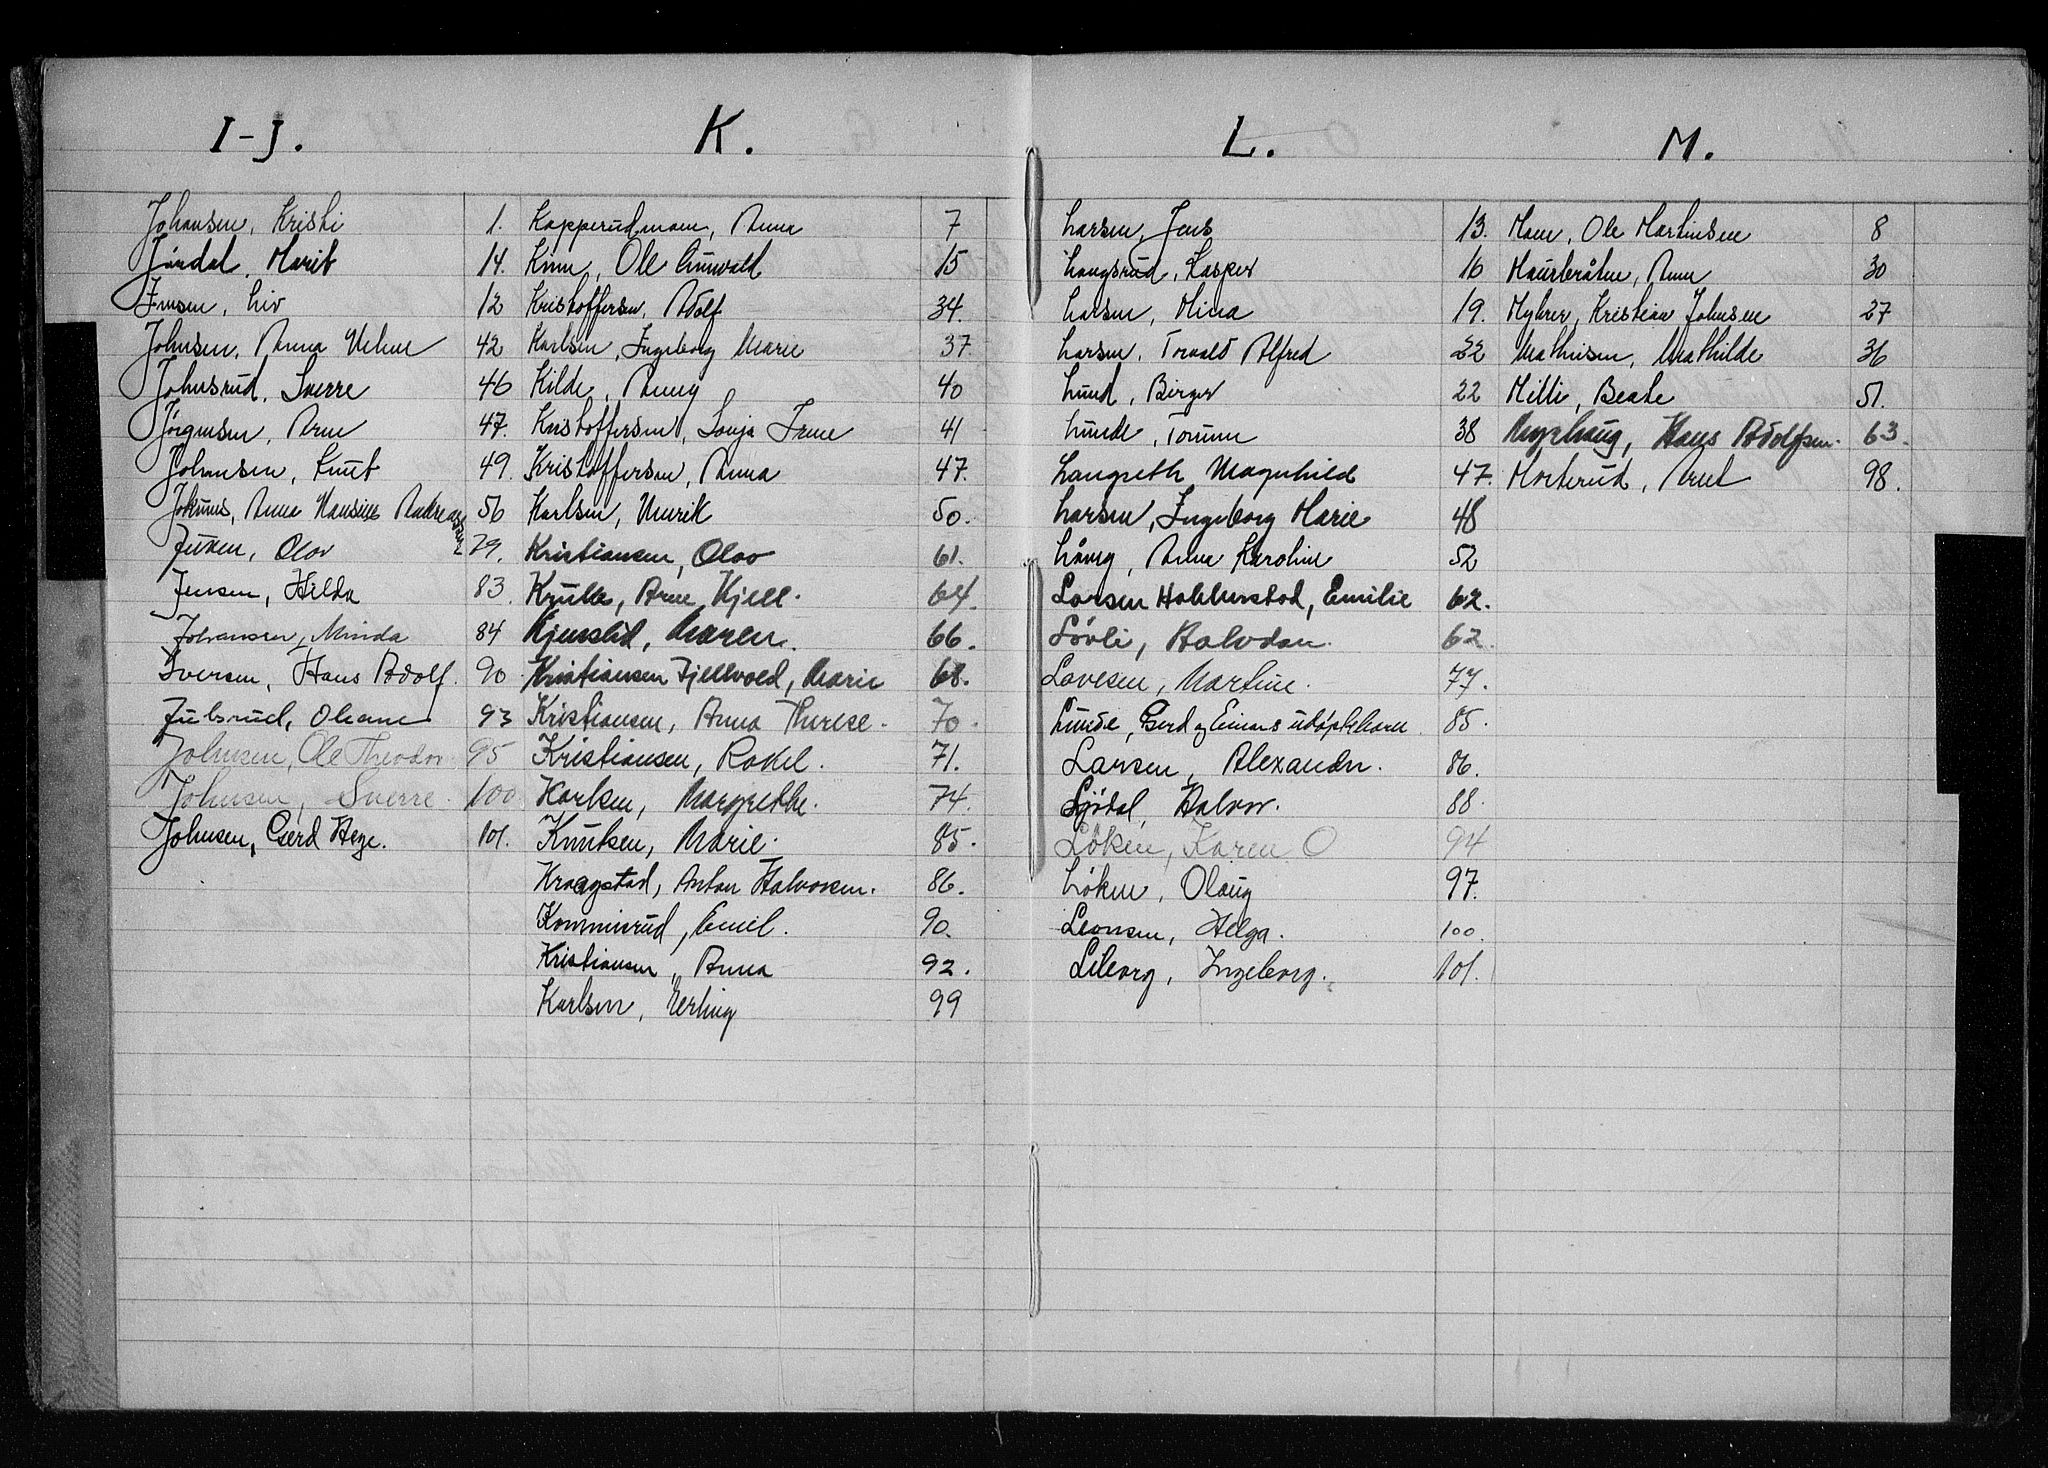 I-J.
Johansen, Kristi 1.
Jørdal, Marit 14.
Jensen, Liv 12
Johnsen, Anna Helene 42
Johnsrud, Sverre 46
Jörgensen, Arne 47.
Johansen, Knut 49.
Anna Hansine Andreassen 56
Juven, Olov 79.
Jensen, Hilda 83.
Johansen, Minda 84
Iversen, Hans Adolf. 90
Julsrud, Oleane 93
Johnsen, Ole Theodor 95
Johnsen, Sverre. 100
Johnsen, Gerd Hege. 101.
K.
Kopperudmoen, Anna 7
Kinn, Ole Gunvald 15
Kristoffersen, Adolf 34.
Karlsen, Ingeborg Marie 37.
Kilde, Anny 40
Kristoffersen, Sonja Irene 41
Kristoffersen, Anna 47.
Karlsen, Unrik 50.
Kristiansen, Olov 61.
Krulle, Arne Kjell. 64.
Kjenslid, Maren. 66.
Kristiansen Fjellvoed, Marie 68.
Kristiansen, Anna Therese. 70.
Kristiansen, Rakel. 71.
Karlsen, Margrethe. 74.
Knutsen, Marie. 85.
Kragstad, Anton Halvorsen. 86.
Kommisrud, Emil. 90.
Kristiansen, Anna 92.
Karlsen, Erling 99
L.
Larsen, Jens 13.
Langsrud, Kasper 16
Larsen, Mina 19.
Larsen, Torvald Alfred 22
Lund, Birger 22
Lunde, Torunn 38
Langseth Magnhild 47.
Larsen, Ingeborg Marie 48
Låveg, Anne Karoline 52
Larsen Holdenstad, Emilie 62.
Lövli, Halvdan. 62.
Lavesen, Martine. 77.
Lunde, Gerd og Einars udöpte barn 85.
Larsen, Alexander. 86.
Sjödal, Halvor. 88.
Løken, Karen O 94
Løken, Olaug 97.
Leonsen, Helga. 100.
Liborg, Ingeborg. 101.
M.
Moen, Ole Martinsen 8
Maurbråten, Anne 30
Myhrer, Kristian Johnsen 27
Mathisen, Mathilde 36
Milli, Beate 51.
Myrhaug, Hans Adolfsen. 63.
Morterud, Arnt 98.